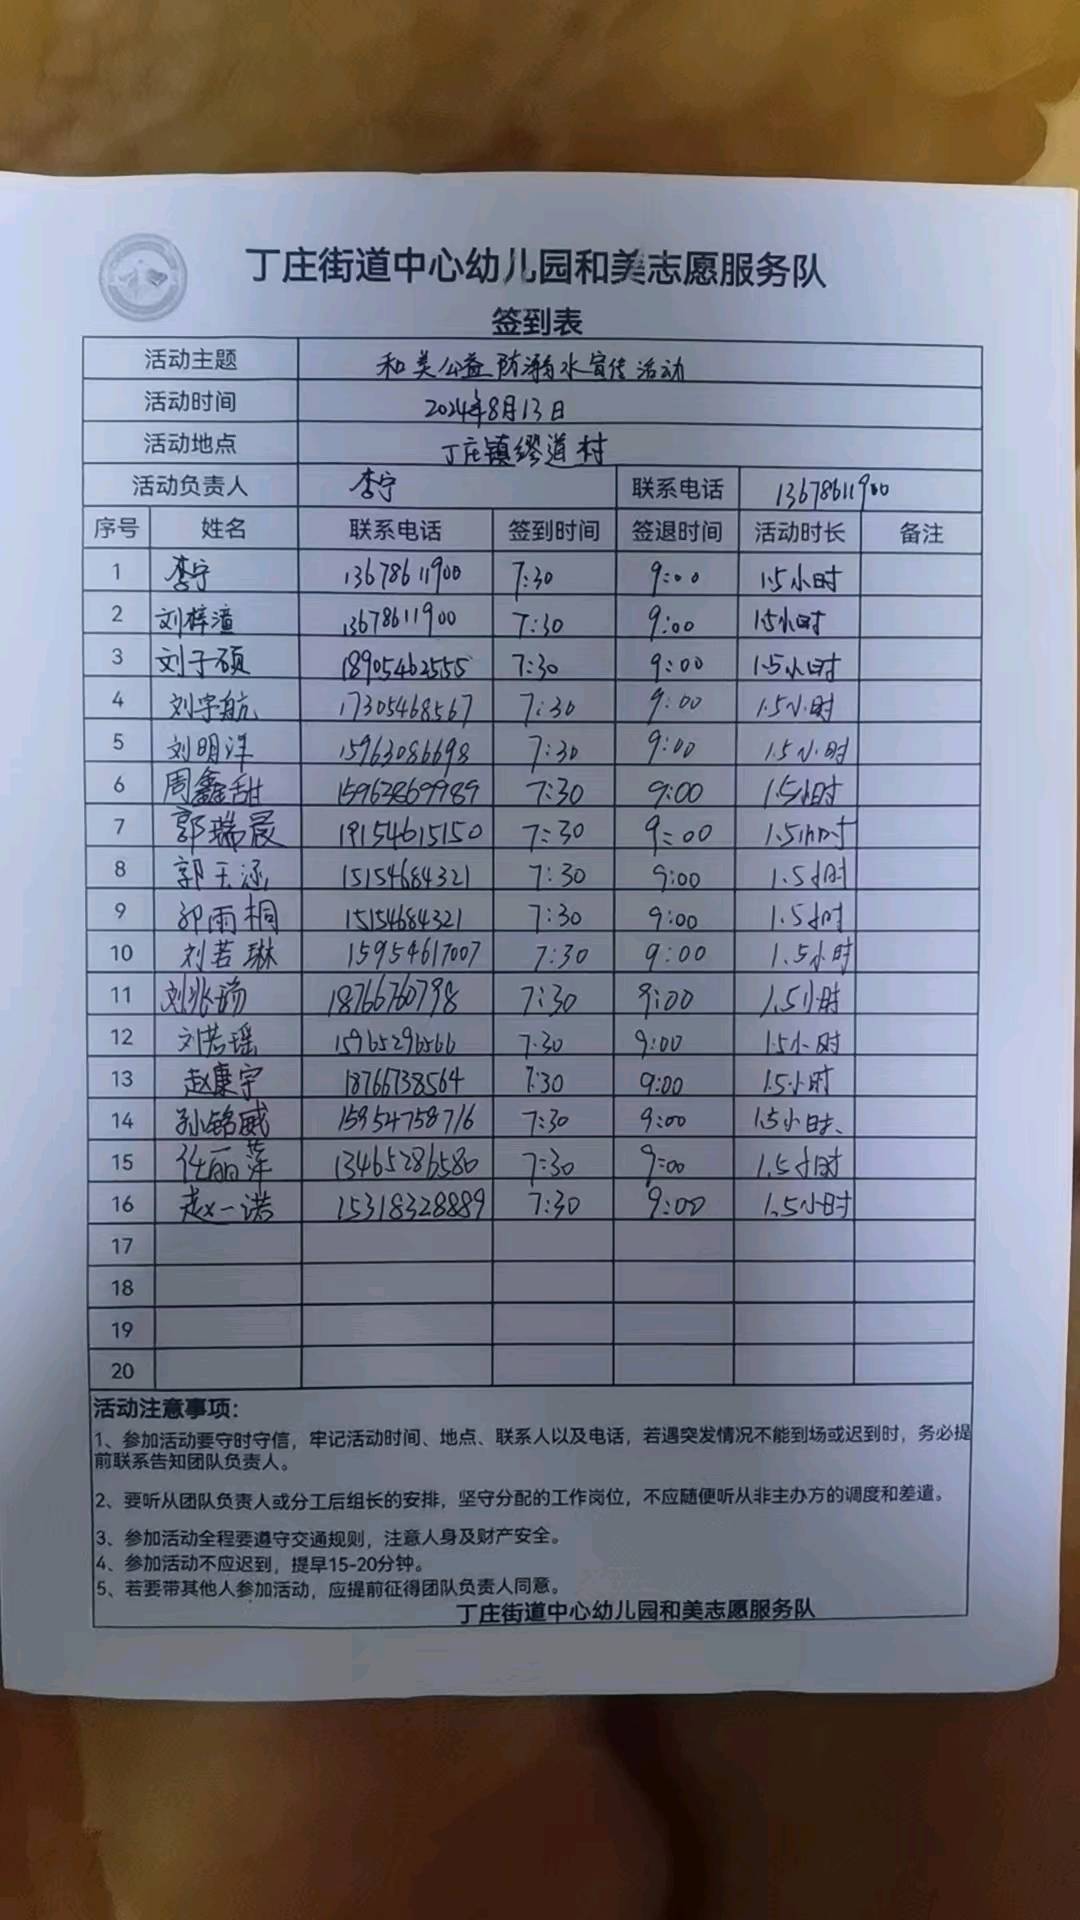 丁庄街道中心幼儿园和美志愿服务队
签到表
活动主题 和美公益防溺水宣传活动
活动时间 2024年8月13日
活动地点 丁庄镇缪道村
活动负责人 李宁 联系电话 13678611900
序号 姓名 联系电话 签到时间 签退时间 活动时长 备注
1 李宁 13678611900 7:30 9:00 1.5小时
2 刘梓潼 13678611900 7:30 9:00 1.5小时
3 刘子硕 18905462555 7:30 9:00 1.5小时
4 刘宇航 17305468567 7:30 9:00 1.5小时
5 刘明洋 15963086698 7:30 9:00 1.5小时
6 周鑫甜 15963869989 7:30 9:00 1.5小时
7 郭瑞宸 19154615150 7:30 9:00 1.5小时
8 郭玉涵 15154684321 7:30 9:00 1.5小时
9 郭雨桐 15154684321 7:30 9:00 1.5小时
10 刘若琳 15954617007 7:30 9:00 1.5小时
11 刘兆瑒 18766760798 7:30 9:00 1.5小时
12 刘若瑶 15965296566 7:30 9:00 1.5小时
13 赵康宇 18766738564 7:30 9:00 1.5小时
14 孙铭威 15954758716 7:30 9:00 1.5小时、
15 任丽萍 13465286580 7:30 9:00 1.5小时
16 赵一诺 15318328889 7:30 9:00 1.5小时
17
18
19
20
活动注意事项：
1、参加活动要守时守信，牢记活动时间、地点、联系人以及电话，若遇突发情况不能到场或迟到时，务必提
前联系告知团队负责人。
2、要听从团队负责人或分工后组长的安排，坚守分配的工作岗位，不应随便听从非主办方的调度和差遣。
3、参加活动全程要遵守交通规则，注意人身及财产安全。
4、参加活动不应迟到，提早15-20分钟。
5、若要带其他人参加活动，应提前征得团队负责人同意。
丁庄街道中心幼儿园和美志愿服务队